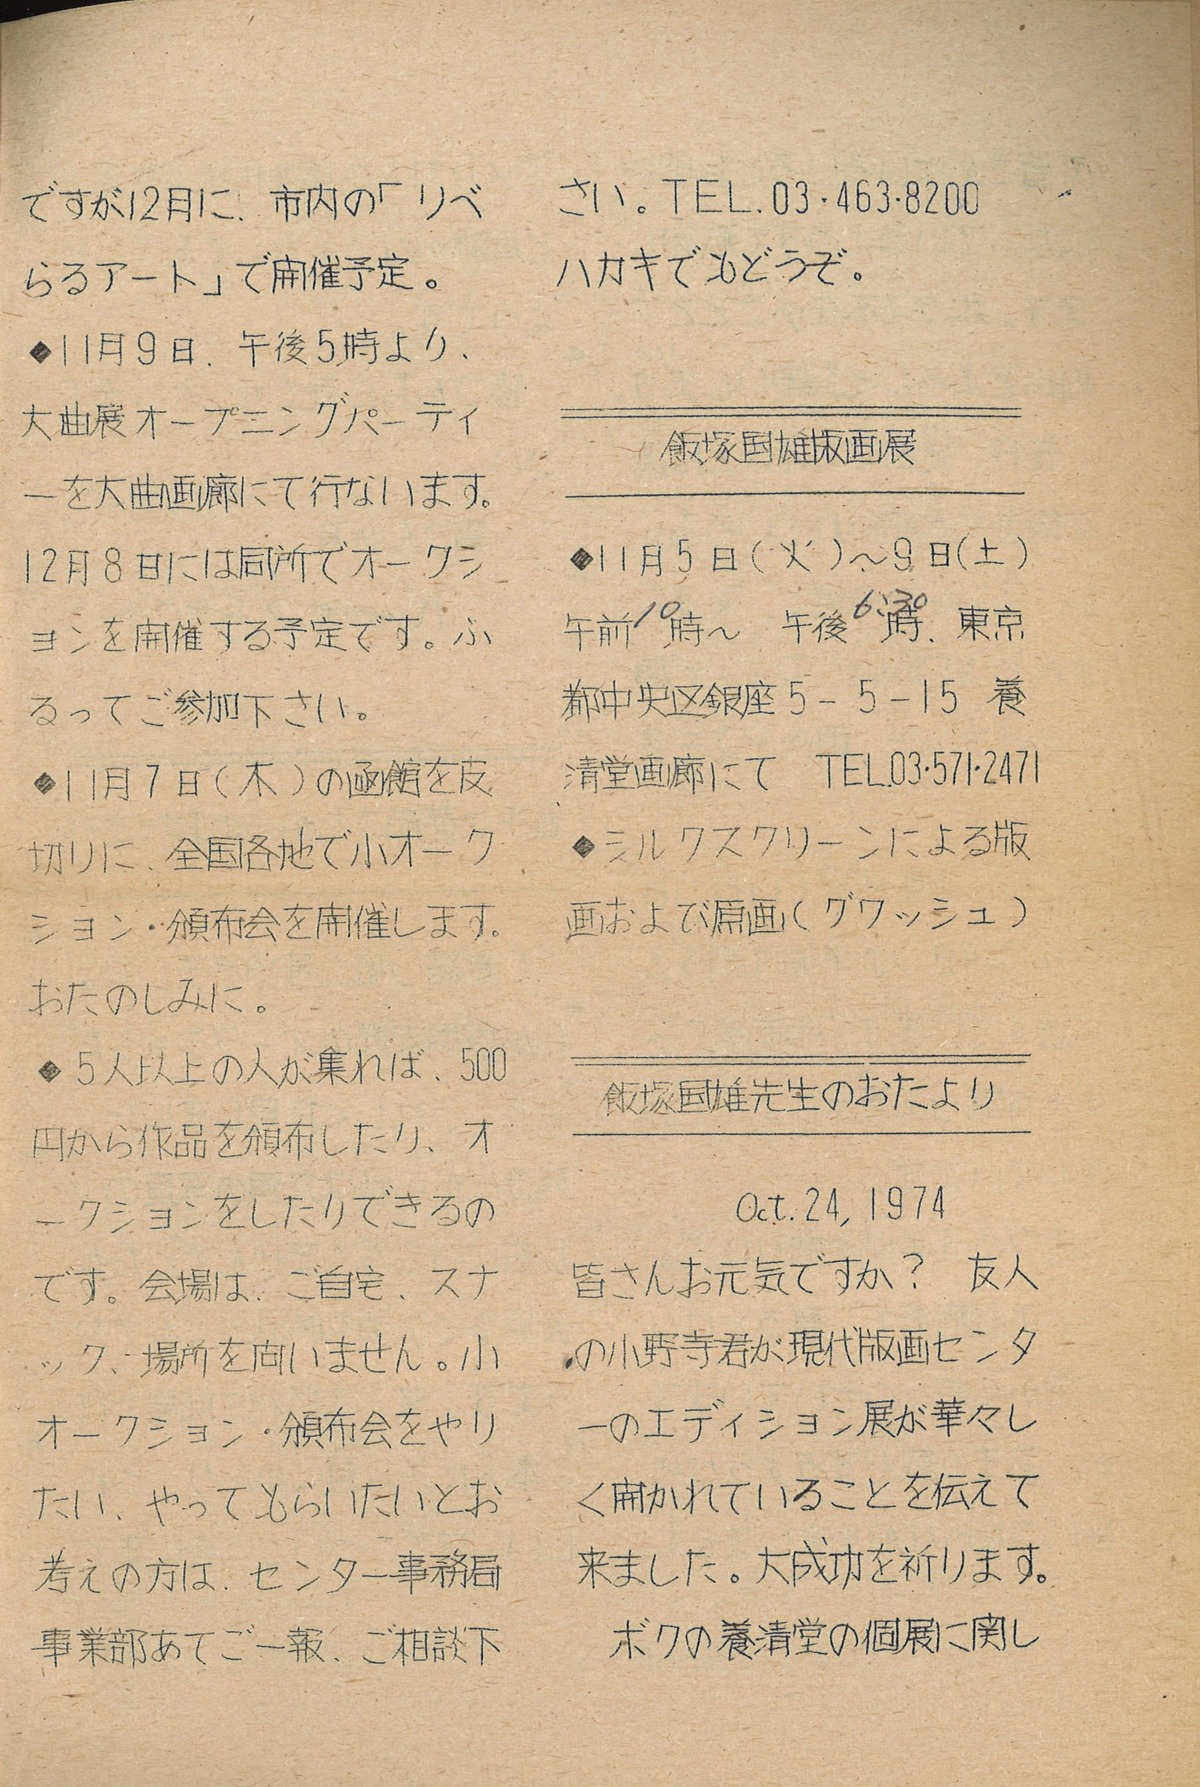 ですが12月に、市内の「りべ
らるアート」で開催予定。
◆11月9日、午後5時より、
大曲展オープニングパーティ
ーを大曲画廊にて行ないます。
12月8日には同所でオークシ
ョンを開催する予定です。ふ
るってご参加下さい。
◆11月7日(木)の函館を皮
切りに、全国各地で小オーク
ション・頒布会を開催します。
おたのしみに。
◆5人以上の人が集れば、500
円から作品を頒布したり、オ
ークションをしたりできるの
です。会場は、ご自宅、スナ
ック、場所を問いません。小
オークション・頒布会をやり
たい、やってもらいたいとお
考えの方は、センター事務局
事業部あてご一報、ご相談下
さい。TEL.03・463・8200
ハガキでもどうぞ。
飯塚国雄版画展
◆11月5日(火)〜9日(土)
午前10時〜 午後6:30時、東京
都中央区銀座5-5-15 養
清堂画廊にて TEL.03・571・2471
◆シルクスクリーンによる版
画および原画(グワッシュ)
飯塚国雄先生のおたより
Oct.24,1974
皆さんお元気ですか? 友人
の小野寺君が現代版画センタ
ーのエディション展が華々し
く開かれていることを伝えて
来ました。大成功を祈ります。
ボクの養清堂の個展に関し